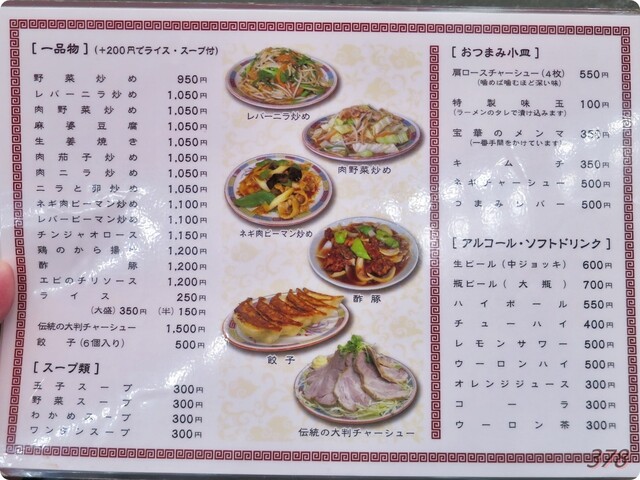 [ 一品物 ] (+200円でライス・スープ付)
野菜炒め 950円
レバーニラ炒め 1,050円
肉野菜炒め 1,050円
麻婆豆腐 1,050円
生姜焼き 1,050円
肉茄子炒め 1,050円
肉ニラ炒め 1,050円
ニラと卵炒め 1,050円
ネギ肉ピーマン炒め 1,100円
レバーピーマン炒め 1,100円
チンジャオロース 1,150円
鶏のから揚げ 1,200円
酢豚 1,200円
エビのチリソース 1,200円
ライス 250円
(大盛) 350円 (半) 150円
伝統の大判チャーシュー 1,500円
餃子 (6個入り) 500円
[ スープ類 ]
玉子スープ 300円
野菜スープ 300円
わかめスープ 300円
ワンタンスープ 300円
レバーニラ炒め
肉野菜炒め
ネギ肉ピーマン炒め
酢豚
餃子
伝統の大判チャーシュー
[ おつまみ小皿 ]
肩ロースチャーシュー (4枚) 550円
(噛めば噛むほど深い味)
特製味玉 100円
(ラーメンのタレで漬け込みます)
宝華のメンマ 350円
(一番手間をかけています)
キムチ 350円
ネギチャーシュー 500円
つまみンバー 500円
[ アルコール・ソフトドリンク ]
生ビール (中ジョッキ) 600円
瓶ビール (大瓶) 700円
ハイボール 550円
チューハイ 400円
レモンサワー 500円
ウーロンハイ 500円
オレンジジュース 300円
コーラ 300円
ウーロン茶 300円
378